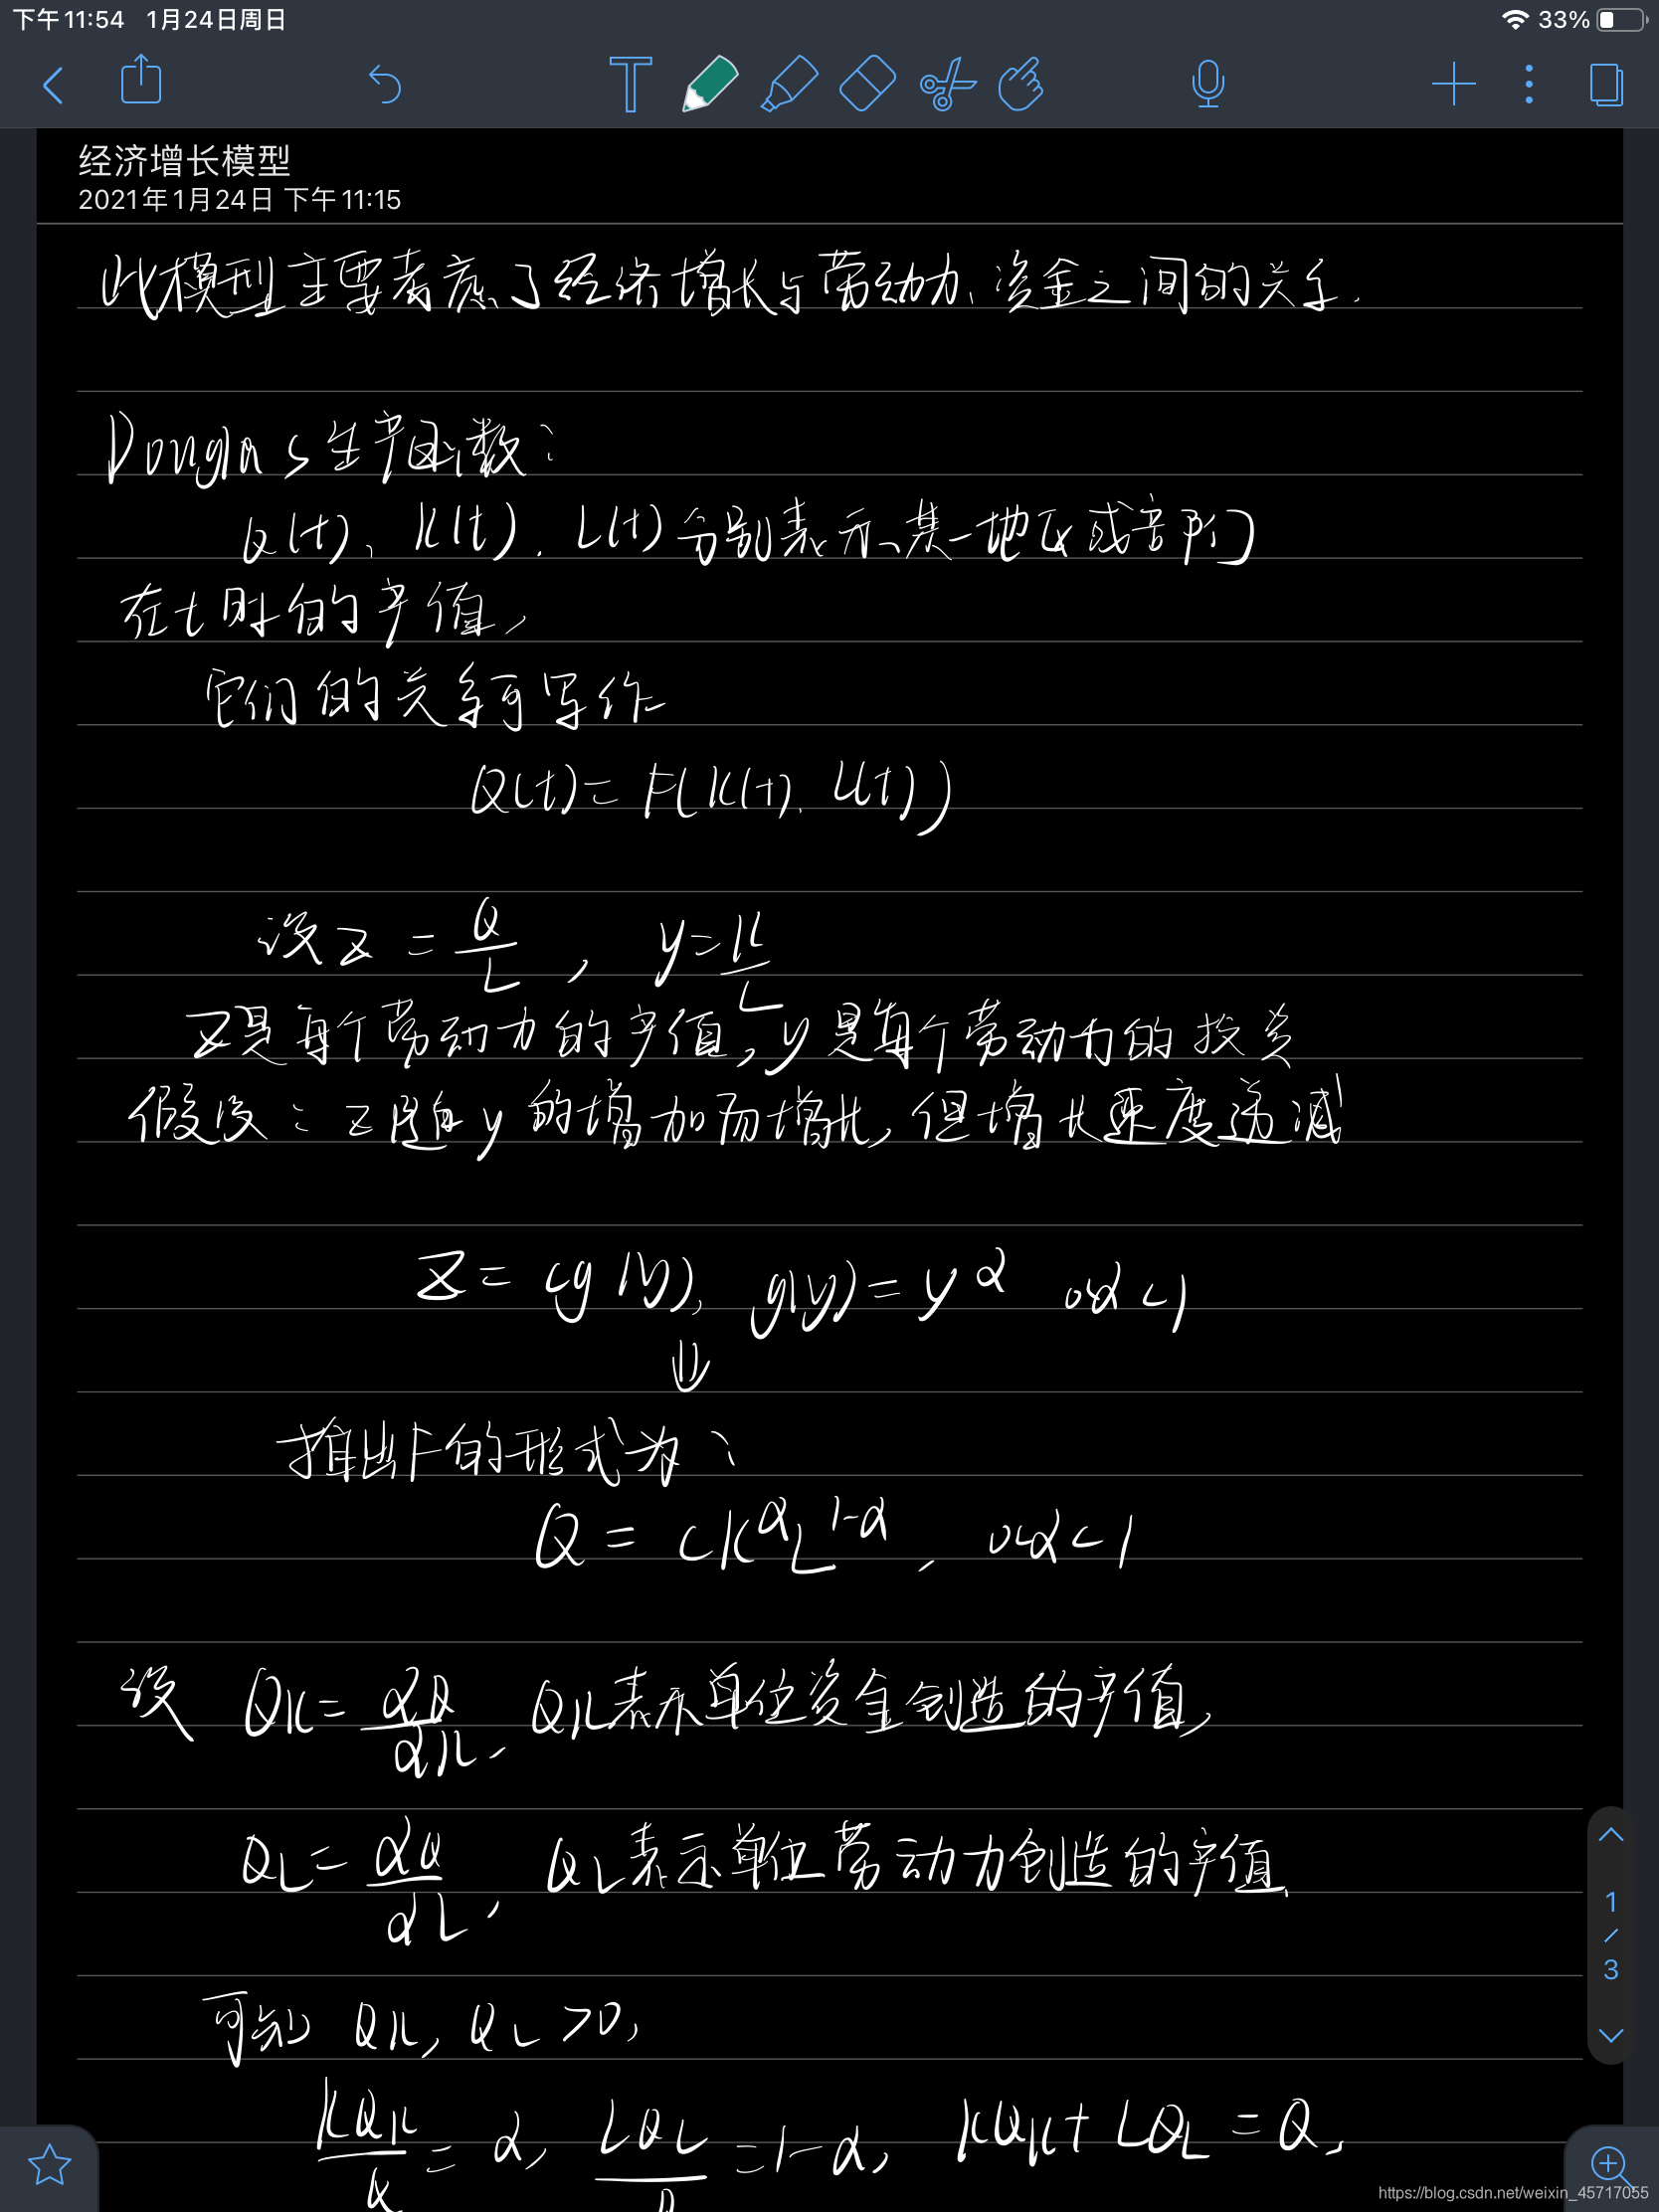 下午11:54 1月24日周日 33%
经济增长模型
2021年1月24日 下午11:15
此模型主要考虑了经济增长与劳动力、资金之间的关系.
Douglas生产函数:
Q(t)、K(t). L(t)分别表示某一地区或部门
在t时的产值,
它们的关系可写作
Q(t)= F(K(t). L(t))
设 z = Q/L , y = K/L
z是每个劳动力的产值, y是每个劳动力的投资
假设: z随y的增加而增长, 但增长速度递减
z = cg(y), g(y) = y^α 0<α<1
⇓
推出F的形式为:
Q = cK^αL^{1-α}, 0<α<1
设 QK = ∂Q/∂K, QK表示单位资金创造的产值,
QL = ∂Q/∂L, QL表示单位劳动力创造的产值.
可知 QK, QL >0,
KQK/Q = α, LQL/Q = 1-α, KQK + LQL = Q,
1
/
3
https://blog.csdn.net/weixin_45717055